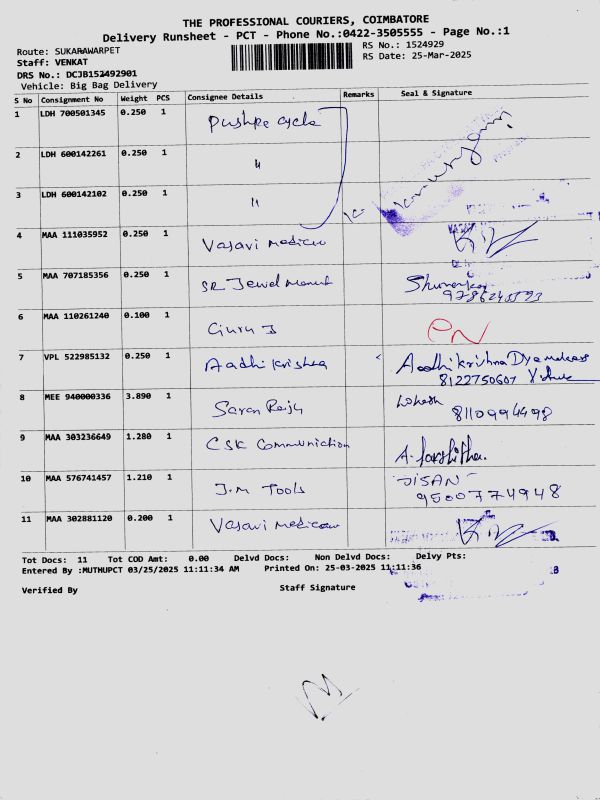 THE PROFESSIONAL COURIERS, COIMBATORE
Delivery Runsheet - PCT - Phone No.:0422-3505555 - Page No.:1
Route: SUKARAWARPET
RS No.: 1524929
Staff: VENKAT
RS Date: 25-Mar-2025
DRS No.: DCJB152492901
Vehicle: Big Bag Delivery
S No Consignment No Weight PCS Consignee Details Remarks Seal & Signature
1 LDH 700501345 0.250 1 Pushpa cycle
2 LDH 600142261 0.250 1 "
3 LDH 600142102 0.250 1 "
4 MAA 111035952 0.250 1 Vasavi medicare
5 MAA 707185356 0.250 1 SR Jewel
6 MAA 110261240 0.100 1 Guru J
7 VPL 522985132 0.250 1 Aadhikrishna Aadhikrishna Dye makers
8122750607
8 MEE 940000336 3.890 1 Saran Raju Lokesh
8110994498
9 MAA 303236649 1.280 1 CSK Communiction
10 MAA 576741457 1.210 1 J.M Tools JISAN
9500774948
11 MAA 302881120 0.200 1 Vasavi medicare
Tot Docs: 11 Tot COD Amt: 0.00 Delvd Docs: Non Delvd Docs: Delvy Pts:
Entered By :MUTHUPCT 03/25/2025 11:11:34 AM Printed On: 25-03-2025 11:11:36
Verified By Staff Signature